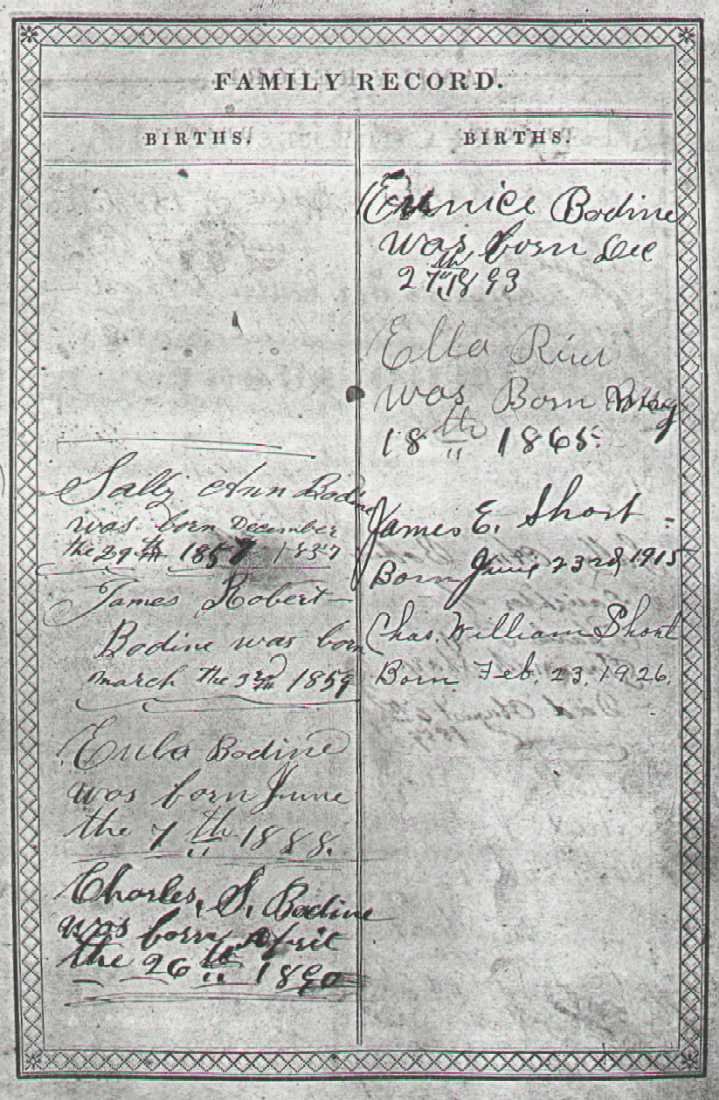 FAMILY RECORD.
BIRTHS.
Sally Ann Bodine
was born December
the 29th 1857 1857
James Robert
Bodine was born
march the 3rd 1859
Eula Bodine
was born June
the 7th 1888.
Charles, S, Bodine
was born April
the 26th 1890
BIRTHS.
Eunice Bodine
was born Dec
27th 1893
Ella
was Born May
18th 1865
James E. Short
Born June 23rd 1915
Chas. William Short
Born Feb. 23, 1926.